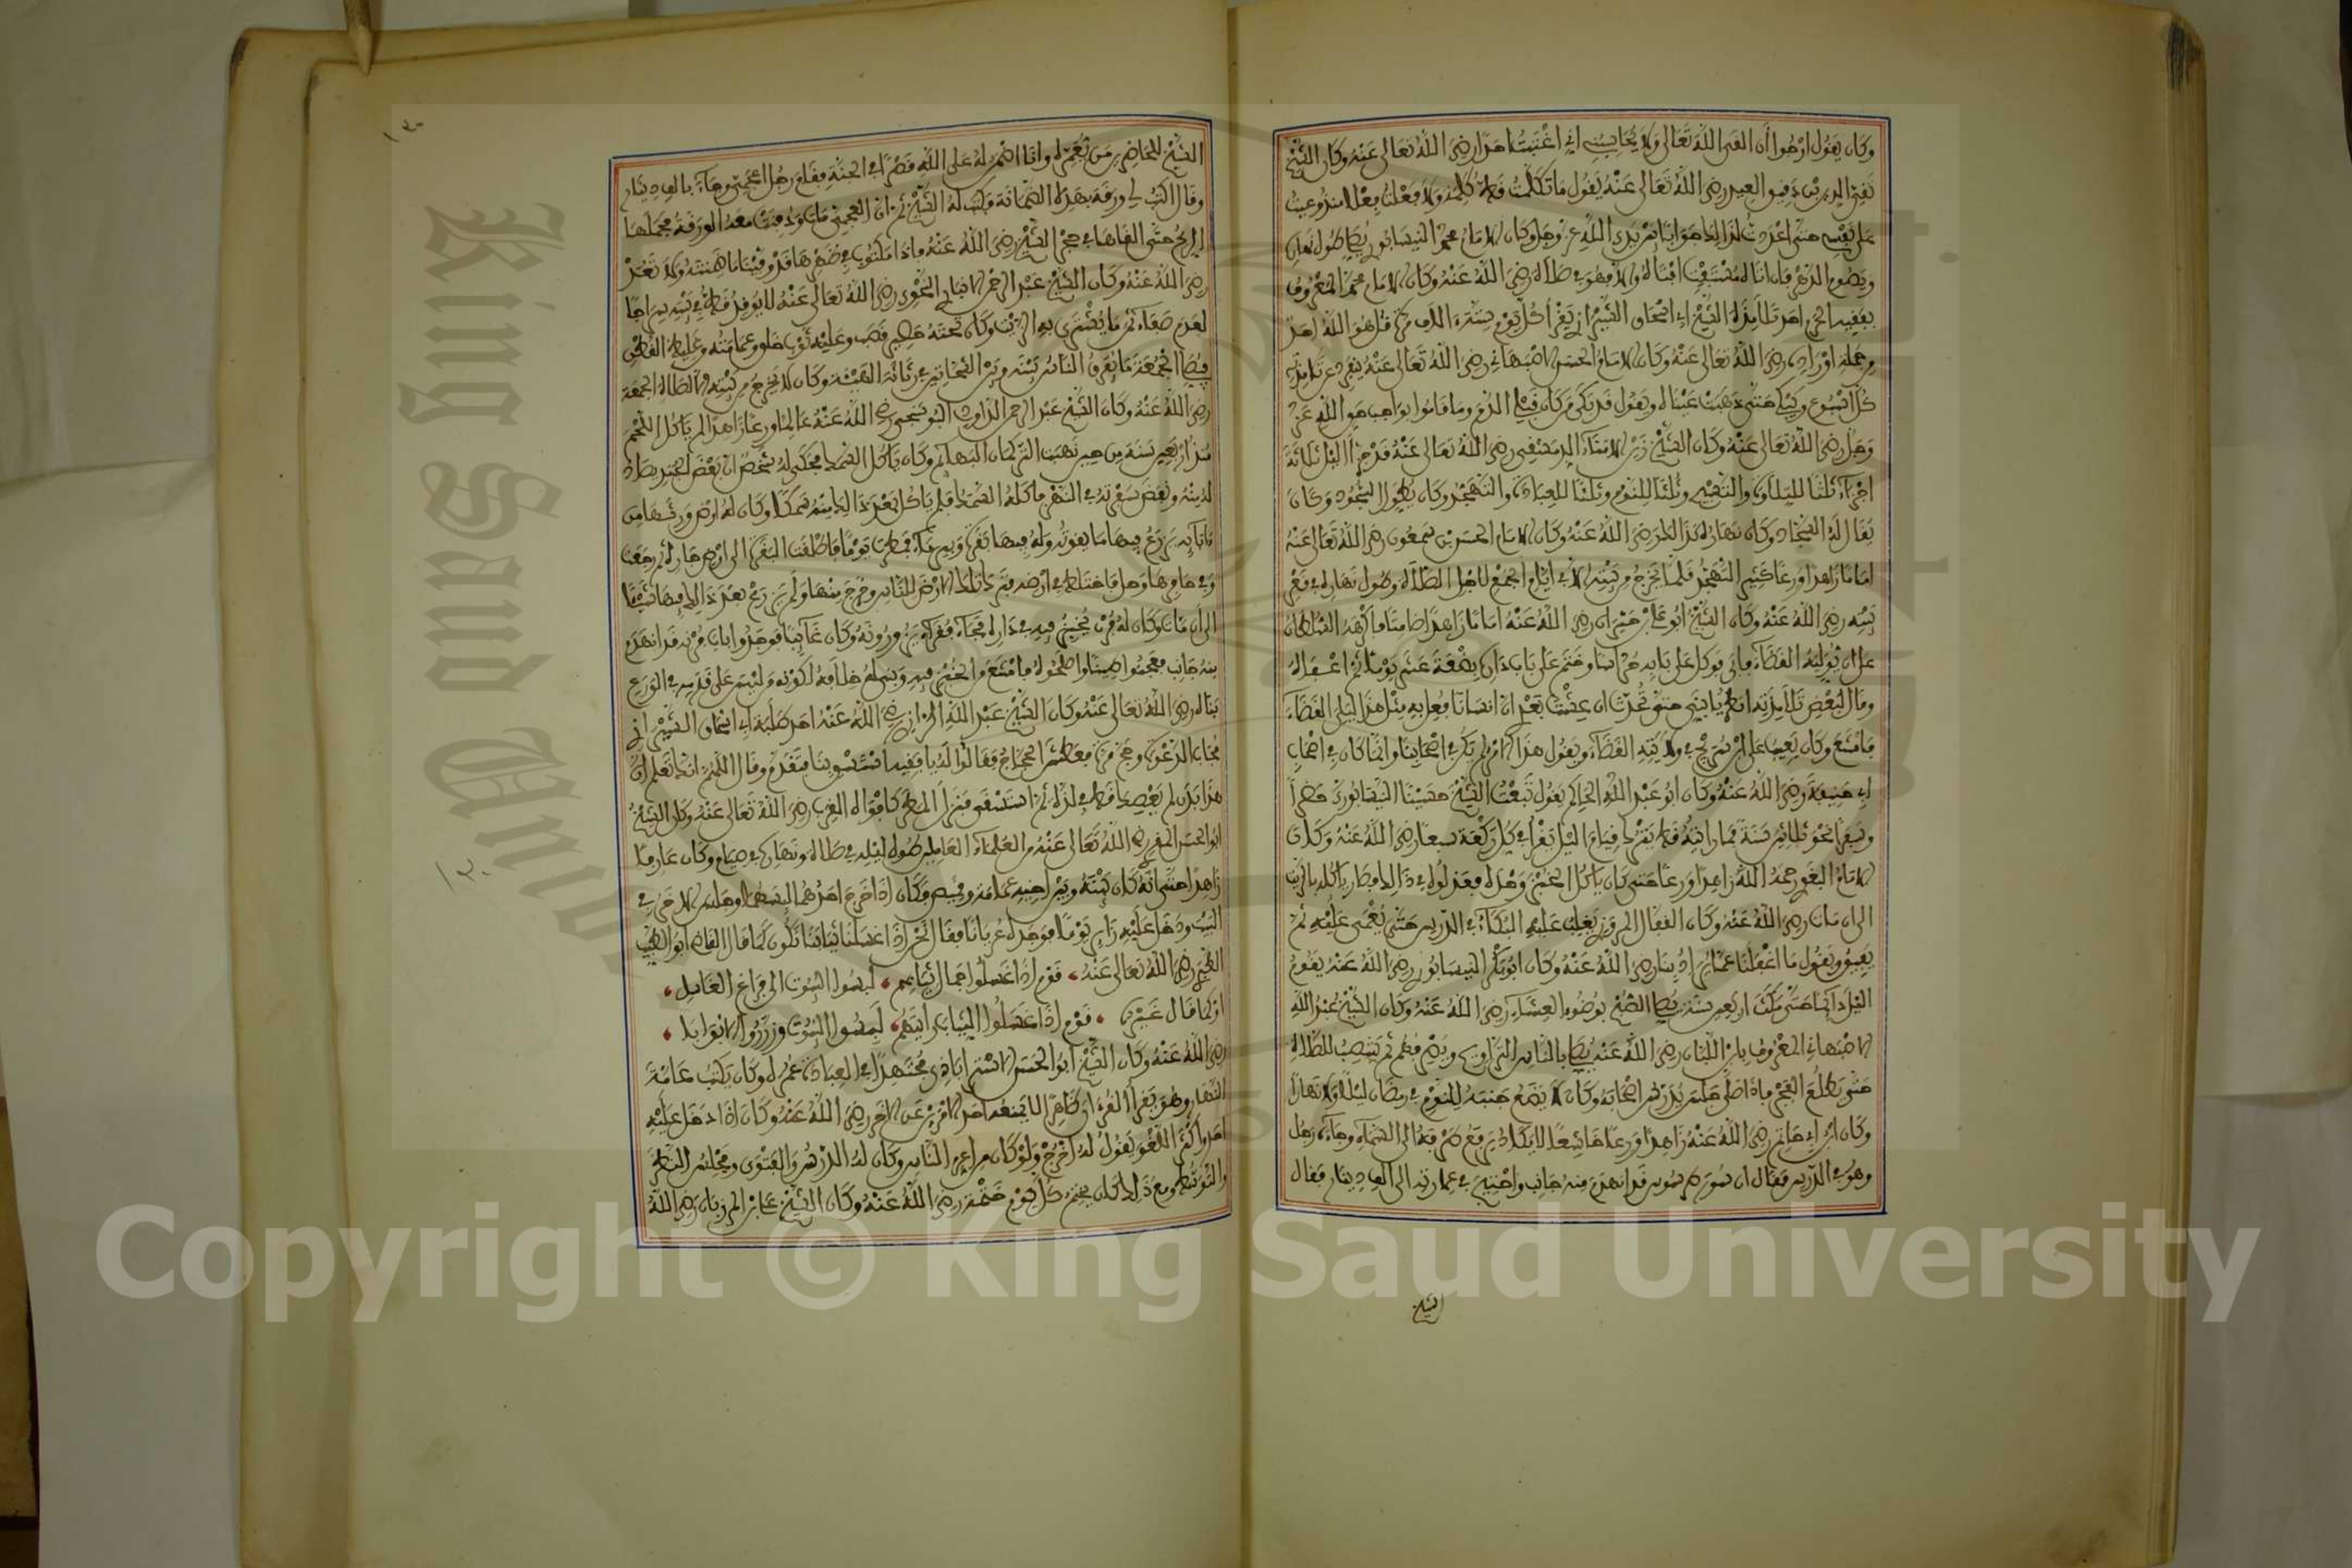 وكان يقول ارجوا أن القى الله تعالى ولا يحاسبني اني اغتبت احدا رضي الله تعالى عنه وكان الشيخ
تقي الدين بن دقيق العيد رضي الله تعالى عنه يقول ما تكلمت قط كلمة ولا فعلت فعلا منذ وعيت
على نفسي حتى اعددت لذلك جوابا بين يدي الله عز وجل وكان الامام محمد النيسابوري يحيي طول
ويصوم الدهر فان اتاه مستفتي افتاه والا فهو في صلاة رضي الله عنه وكان الامام محمد المعروف
الحرم احد تلامذة الشيخ ابي اسحاق الشيرازي يقرأ كل يوم ستة الاف مرة قل هو الله احد
من جملة اوراده رضي الله تعالى عنه وكان الامام الحسن الاصبهاني رضي الله تعالى عنه
كل اسبوع ويبكي حتى ذهبت عيناه ويقول قد بكى من كان قبلي الدم وما قاموا بواجب حق الله عز
وجل رضي الله تعالى عنه وكان الشيخ زين الامناء الدمشقي رضي الله تعالى عنه قد جزأ الليل ثلاثة
اجزاء ثلثا للتلاوة والتسبيح وثلثا للنوم وثلثا للعبادة والتهجد وكان يطول السجود وكان
يقال له السجاد وكان نهاره كذلك رضي الله عنه وكان الامام الحسن بن سمعون رضي الله تعالى عنه
اماما زاهدا ورعا كثير التهجد قلما يخرج من بيته الا في ايام الجمع لاجل الصلاة وطول نهاره في قعر
بيته رضي الله عنه وكان الشيخ ابو علي بن خيران رضي الله عنه اماما زاهدا فاكرهه السلطان
على ان يوليه القضاء فابى فوكل على بابه وختم على باب داره بضعة عشر يوما ثم اعفاه
وقال لبعض تلامذته انظر يا بني حتى تحدث ان عشت بعدي ان انسانا فعل به مثل هذا ليلي القضاء
فامتنع وكان يعيب على ابن سريج في ولايته القضاء ويقول هذا الامر لم يكن في اصحابنا وانما كان في اصحاب
ابي حنيفة رضي الله عنه وكان ابو عبد الله الحاكم يقول تبعت الشيخ حسينا النيسابوري حضرا
وسفرا نحو ثلاثين سنة فما رايته قط يترك قيام الليل يقرأ في كل ركعة سبعا رضي الله عنه وكان
الامام البغوي رحمه الله زاهدا ورعا حتى كان ياكل الخبز وحده فعذلوه في ذلك فصار ياكله بالزيت
الى ان مات رضي الله عنه وكان القفال المروزي يغلب عليه البكاء في الدرس حتى يغمى عليه ثم
يفيق ويقول ما اغفلنا عما يراد بنا رضي الله عنه وكان ابو بكر النيسابوري رضي الله عنه يقوم
الليل دائما حتى مكث اربعين سنة يصلي الصبح بوضوء العشاء رضي الله عنه وكان الشيخ عبد الله
الاصبهاني المعروف بابن اللبان رضي الله عنه يصلي بالناس التراويح في رمضان ثم ينتصب للصلاة
حتى يطلع الفجر فاذا صلى جلس يدرس اصحابه وكان لا يضع جنبه للنوم في رمضان ليلا ولا نهارا
وكان ابن ابي حاتم رضي الله عنه زاهدا ورعا خاشعا لا يكاد يرفع طرفه الى السماء وجاءه رجل
وهو في الدرس فقال ان سور طرسوس قد انهدم منه جانب واحتيج في عمارته الى الف دينار فقال
الشيخ
الشيخ للحاضرين من يعمره وانا اضمن له على الله قصرا في الجنة فقام رجل اعجمي وجاء بالف دينار
وقال اكتب لي ورقة بهذه الضمانة فكتب له الشيخ ثم ان العجمي مات ودفنت معه الورقة فحملها
الريح حتى القاها في حجر الشيخ رضي الله عنه واذا مكتوب في ظهرها قد وفينا ما ضمنته ولا تعد
رضي الله عنه وكان الشيخ عبد الرحمن الانباري النحوي رضي الله تعالى عنه لا يوقد قط في بيته سراجا
لعدم صفاء ثمن ما يشتري به الزيت وكان تحته حصير قصب وعليه ثوب خلق وعمامته وعليه القطن
فيصلي الجمعة ما يفرق الناس بينه وبين الشحاتين في رثاثة الهيئة وكان لا يخرج من بيته الا لصلاة الجمعة
رضي الله عنه وكان الشيخ عبد الرحمن الداودي البوشنجي رضي الله عنه عالما ورعا زاهدا لم ياكل اللحم
منذ اربعين سنة من حين نهبت التركمان البهائم وكان ياكل السمك فحكى له شخص ان بعض الجند
ونفض سفرته في النهر فاكله السمك فلم ياكل بعد ذلك منه سمكا وكان له ارض ورثها من
ابائه يزرع فيها ما يقوته وله فيها بقرة وبير ماء فمطرت يوما فاطلقت البقرة الى ارض جاره ثم رجعت
وفي حافرها وحل فاختلط في ارضه فترك تلك الارض للناس وخرج منها ولم يزرع بعد ذلك فيها شيئا
الى ان مات وكان له فرن يخبز فيه في داره فجاء فقراء يزورونه وكان غائبا فوجدوا باب فرنه قد انهدم
منه جانب فعجنوا طينا واصلحوه فامتنع من الخبز فيه وبنى له خلافه لكونه من لم يتم على قدمه في الورع
بناه رضي الله تعالى عنه وكان الشيخ عبد الله رضي الله عنه احد طلبة ابي اسحاق الشيرازي
مجاب الدعوة وحج مرة معطش الحجاج فقالوا له يا فقيه استسق بنا فتقدم وقال اللهم انك تعلم ان
هذا بدن لم يعصك قط في لذة ثم استسقى فنزل المطر كافواه القرب رضي الله تعالى عنه وكان الشيخ
ابو الحسن المقري رضي الله تعالى عنه من العلماء العاملين طول ليله في صلاة ونهاره في صيام وكان عارفا
زاهدا حتى انه كان بينه وبين اخيه عمامة وقميص فكان اذا خرج احدهما لبسهما وجلس الاخر في
البيت ودخل عليه زائر يوما فوجده عريانا فقال نحن اذا غسلنا ثيابنا نكون كما قال القاضي ابو الطيب
الطبري رضي الله تعالى عنه، قوم اذا غسلوا جمال ثيابهم، لبسوا البيوت الى فراغ الغاسل،
او كما قال غيره، قوم اذا غسلوا الثياب رايتهم، لبسوا البيوت وزرروا الابوابا،
رضي الله عنه وكان الشيخ ابو الحسن الاسترابادي مجتهدا في العبادة عمره وكان يكتب عامة
النهار وهو يقرأ القرءان ظاهرا لا يمنعه احد الامرين عن الاخر رضي الله عنه وكان اذا دخل عليه
احد واكثر اللغو يقول له اخرج ولو كان من اعز الناس وكان له الدرس والفتوى ومجلس النظر
والتوسط ومع ذلك كان يختم كل يوم ختمة رضي الله عنه وكان الشيخ علي بن المرزبان رضي الله
King Saud University
Copyright © King Saud University